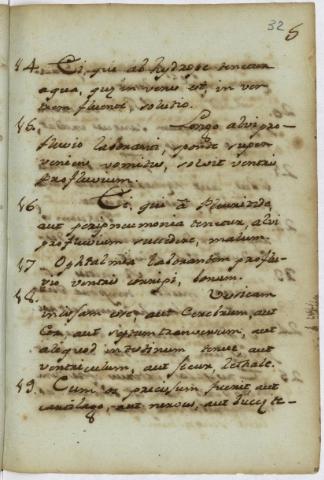 32 5
14. Ei, que ab hydrope tenetur
aqua, quę in venis est, in ven-
trem fluente, solutio.
15. Longo alvi pro-
fluvio laboranti, sponte super-
veniens vomitus, solvit ventris
profluvium.
16. Ei, qui à Pleuritide,
aut peripneumonia tenetur, alvi
profluvium succedere, malum.
17 Ophtalmia laborantem proflu-
vio ventris corripi, bonum.
18. Vesicam
incisam esse, aut Cerebrum, aut
Cor, aut septum transversum, aut
aliquod intestinum tenue, aut
ventriculum, aut jecur, lethale.
19. Cum os precisum fuerit aut
cartilago, aut nervus, aut